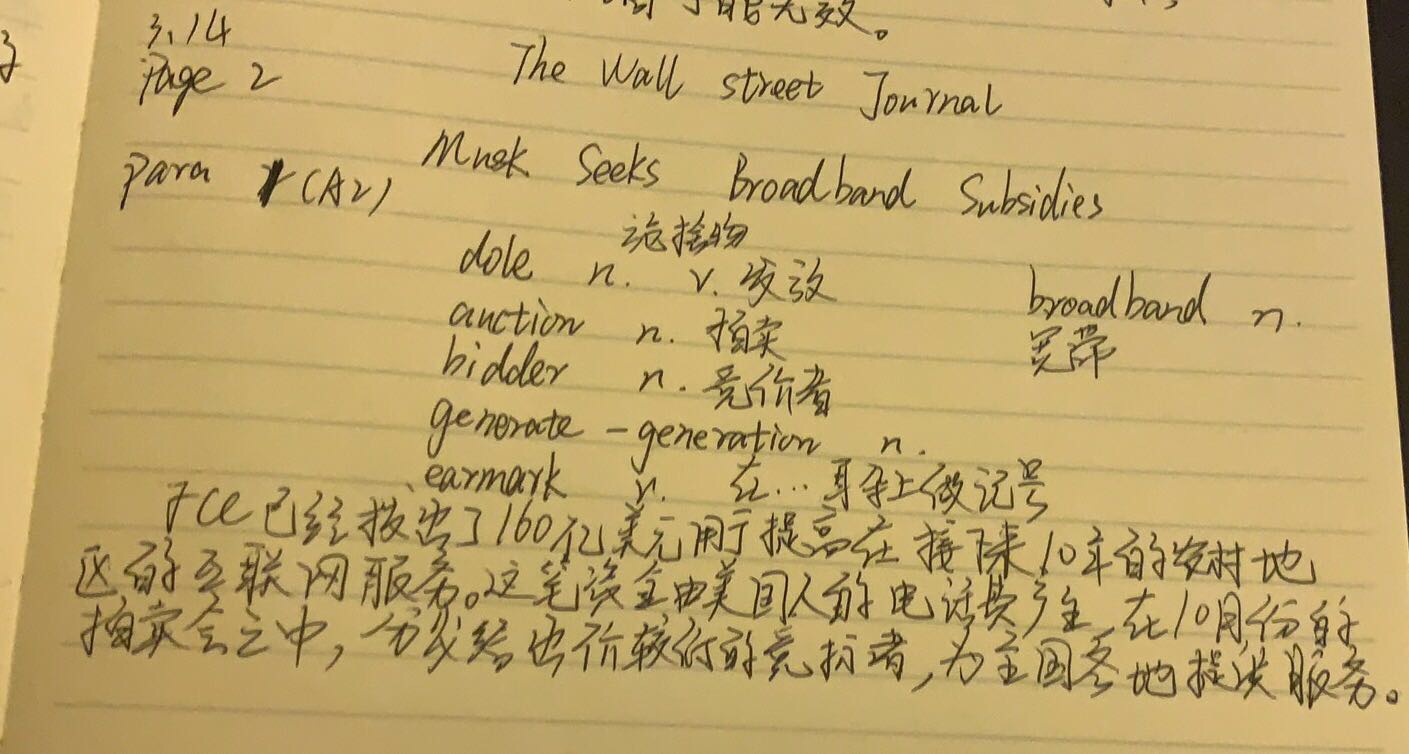 能无效。
3.14
Page 2 The Wall street Journal
para (A2) Musk Seeks Broadband Subsidies
施捨物
dole n. v. 发放 broadband n.
auction n. 拍卖 宽带
bidder n. 竞价者
generate - generation n.
earmark v. 在...耳朵上做记号
FCC已经拨出了160亿美元用于提高在接下来10年的农村地
区的互联网服务。这笔资金由美国人的电话费产生,在10月份的
拍卖会之中,分发给出价较低的竞拍者,为全国各地提供服务。